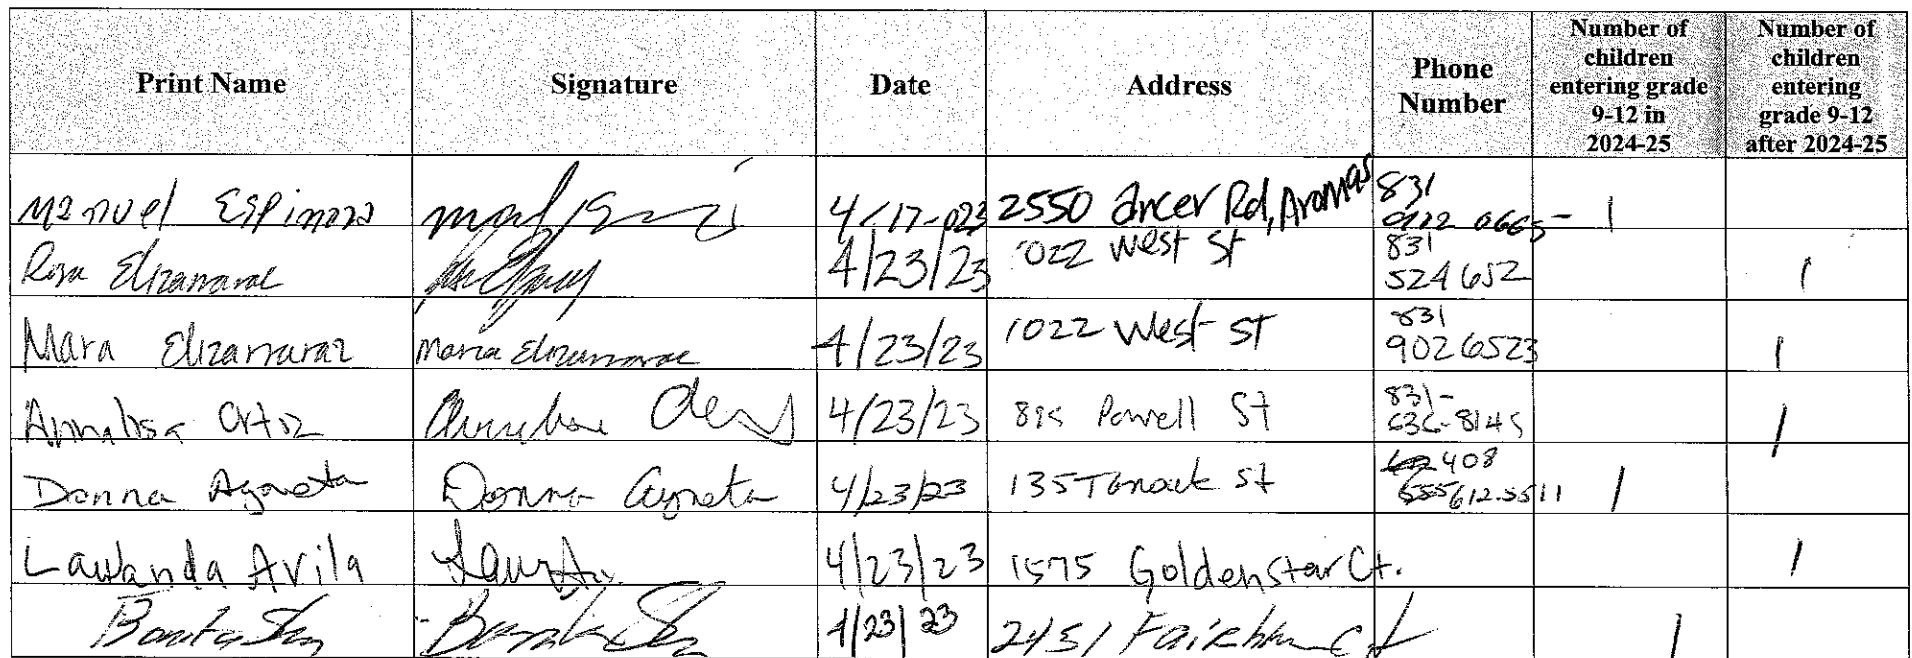 Print Name Signature Date Address Phone Number Number of children entering grade 9-12 in 2024-25 Number of children entering grade 9-12 after 2024-25
Manuel Espinoza 4-17-023 2550 Ancer Rd, Aromas 831 1
Rosa Elizarraraz 4/23/23 1022 West St 831 524 652 1
Mara Elizarraraz Maria Elizarraraz 4/23/23 1022 West St 831 902 6523 1
Annalisa Ortiz 4/23/23 Powell St 831- 636-8145 1
Donna Agneta Donna Agneta 4/23/23 135 St 408 612-5511 1
Lawanda Avila 4/23/23 1575 Goldenstar Ct. 1
4/23/23 2451 Ct 1